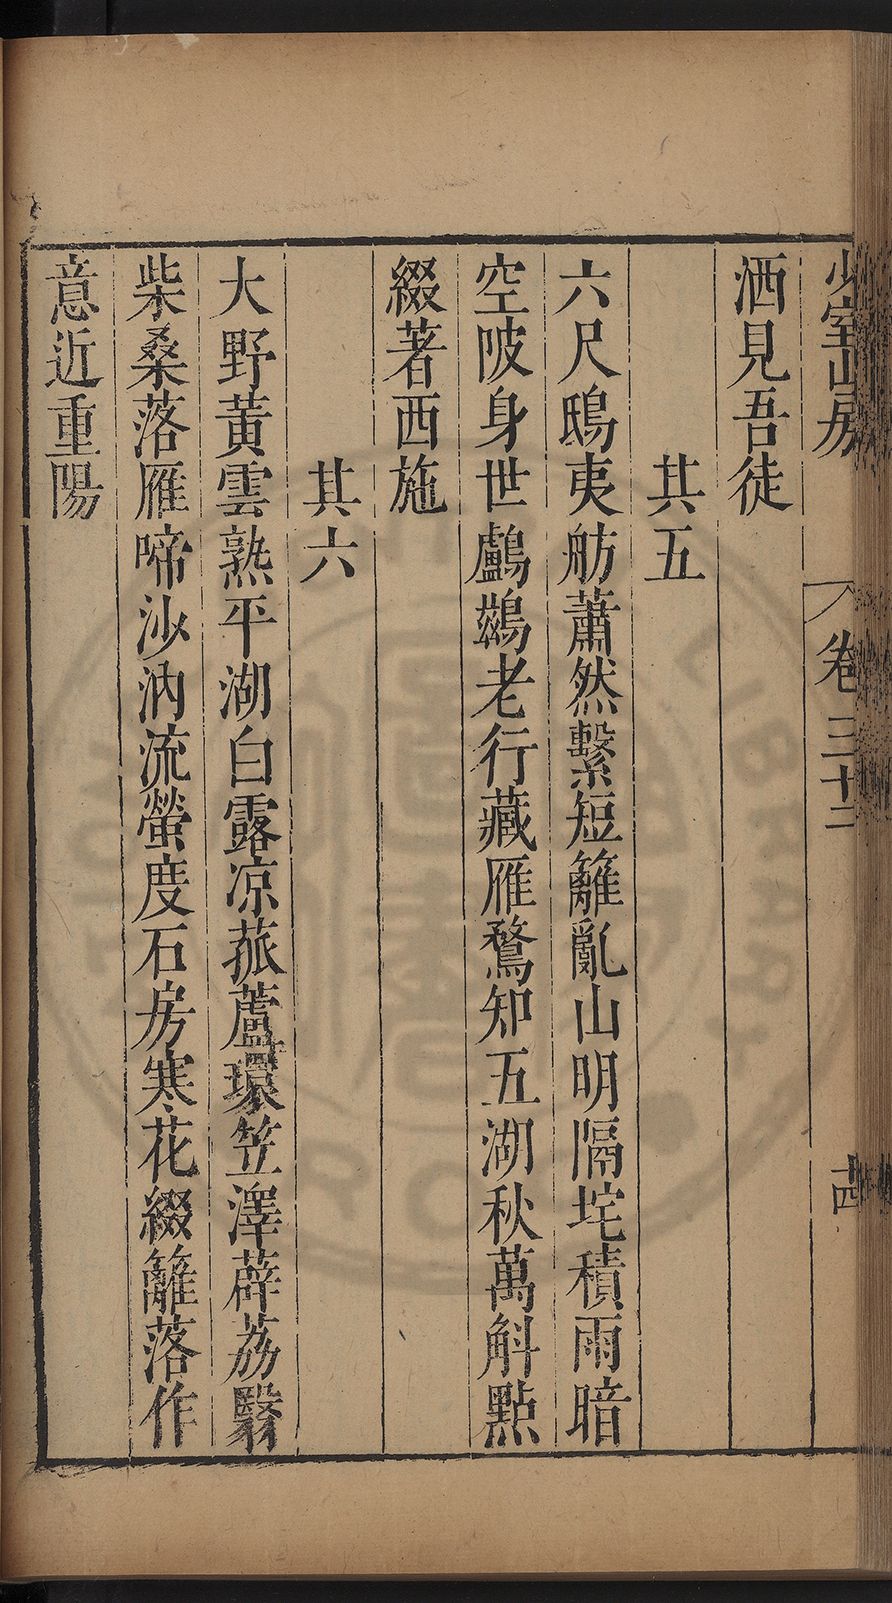 少室山房
卷三十二
十四
洒見吾徒
其五
六尺鴟夷舫蕭然繫短籬亂山明隔坨積雨暗
空陂身世鸕鷀老行藏雁鶩知五湖秋萬斛點
綴著西施
其六
大野黄雲熟平湖白露凉菰蘆環笠澤薜荔翳
柴桑落雁啼沙汭流螢度石房寒花綴籬落作
意近重陽